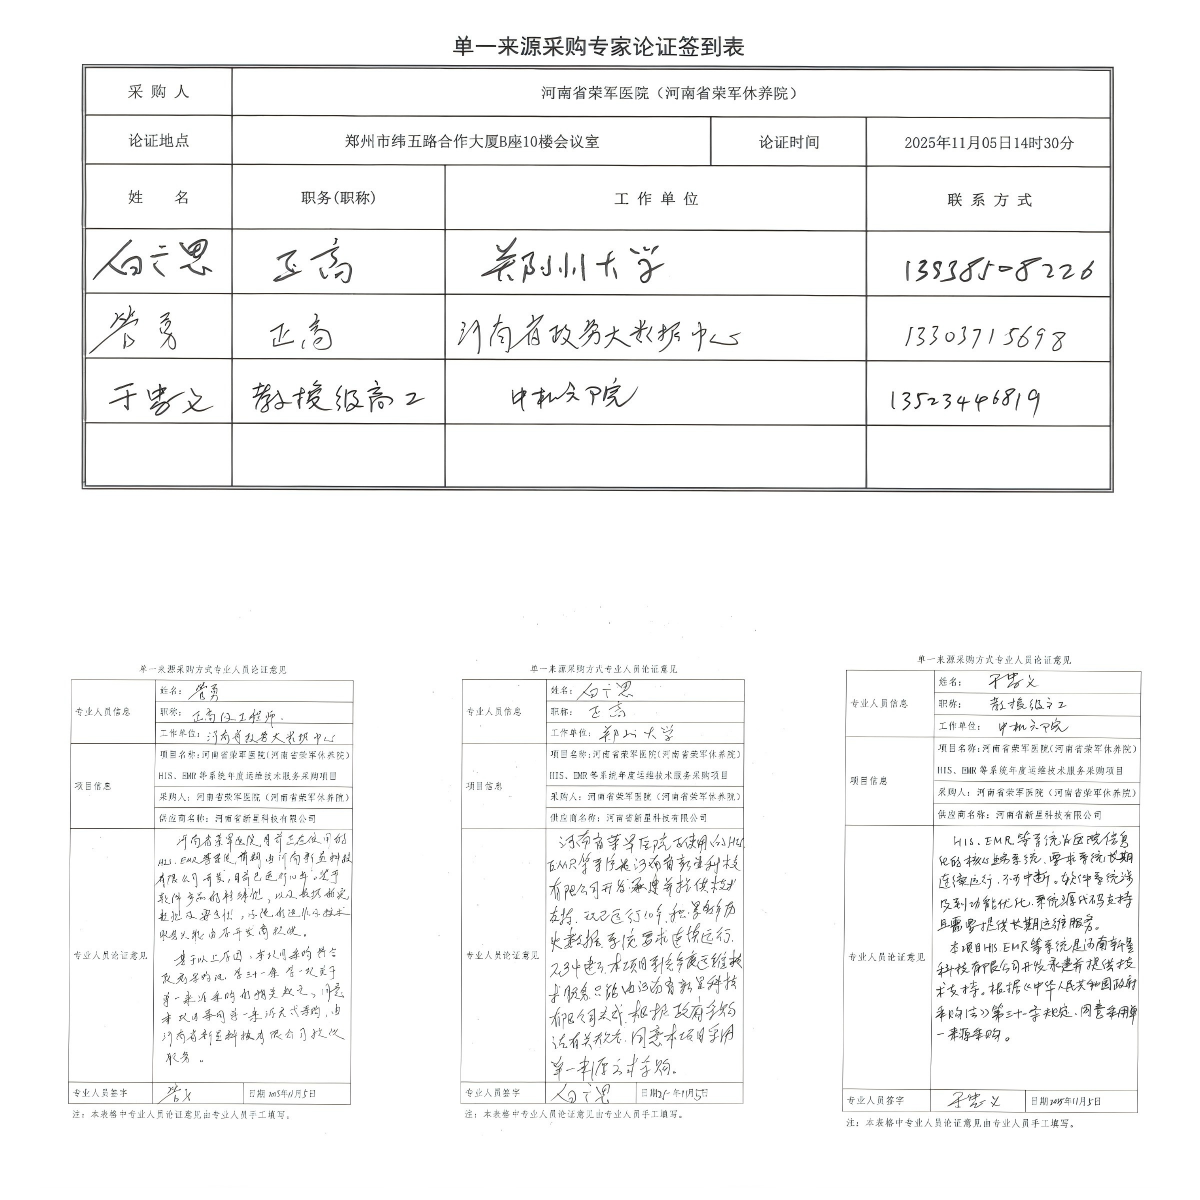 单一来源采购专家论证签到表
采购人 河南省荣军医院（河南省荣军休养院）
论证地点 郑州市纬五路合作大厦B座10楼会议室 论证时间 2025年11月05日14时30分
姓 名 职务(职称) 工作单位 联系方式
白广思 正高 郑州大学 13938508226
管勇 正高 河南省政务大数据中心 13303715698
于忠义 教授级高工 中机六院 13523446819
单一来源采购方式专业人员论证意见
专业人员信息
姓名：管勇
职称：正高级工程师.
工作单位：河南省政务大数据中心
项目信息
项目名称：河南省荣军医院(河南省荣军休养院)
HIS、EMR等系统年度运维技术服务采购项目
采购人：河南省荣军医院（河南省荣军休养院）
供应商名称：河南省新星科技有限公司
专业人员论证意见
河南省荣军医院目前正在使用的
HIS、EMR等系统前期由河南新星科技
有限公司开发，目前已运行10年。鉴于
软件产品的特殊性，以及数据的完
整性及安全性，
基于以上原因，本次采购符合
政府采购法第三十一条第一款关于
单一来源采购的相关规定，同意
本项目采用单一来源方式采购，由
河南省新星科技有限公司提供
服务。
专业人员签字 管勇 日期 2025年11月5日
注：本表格中专业人员论证意见由专业人员手工填写。
单一来源采购方式专业人员论证意见
专业人员信息
姓名：白广思
职称：正高
工作单位：郑州大学
项目信息
项目名称：河南省荣军医院(河南省荣军休养院)
HIS、EMR等系统年度运维技术服务采购项目
采购人：河南省荣军医院（河南省荣军休养院）
供应商名称：河南省新星科技有限公司
专业人员论证意见
河南省荣军医院使用的HIS、
EMR等系统是河南省新星科技
有限公司开发承建并提供技术
支持，现已运行10年，积累多年历
史数据，系统要求连续运行，
不可中断，本项目系统年度运维技
术服务只能由河南省新星科技
有限公司完成，根据政府采购
法有关规定，同意本项目采用
单一来源方式采购。
专业人员签字 白广思 日期25年11月5日
注：本表格中专业人员论证意见由专业人员手工填写。
单一来源采购方式专业人员论证意见
专业人员信息
姓名：于忠义
职称：教授级高工
工作单位：中机六院
项目信息
项目名称：河南省荣军医院(河南省荣军休养院)
HIS、EMR等系统年度运维技术服务采购项目
采购人：河南省荣军医院（河南省荣军休养院）
供应商名称：河南省新星科技有限公司
专业人员论证意见
HIS、EMR等系统为医院信息
化的核心业务系统，要求系统长期
连续运行，不可中断。软件系统涉
及到功能优化、系统源代码支持
且需要提供长期运维服务。
本项目HIS、EMR等系统是河南新星
科技有限公司开发承建并提供技
术支持。根据《中华人民共和国政府
采购法》第三十一条规定，同意采用单
一来源采购。
专业人员签字 于忠义 日期 2025年11月5日
注：本表格中专业人员论证意见由专业人员手工填写。